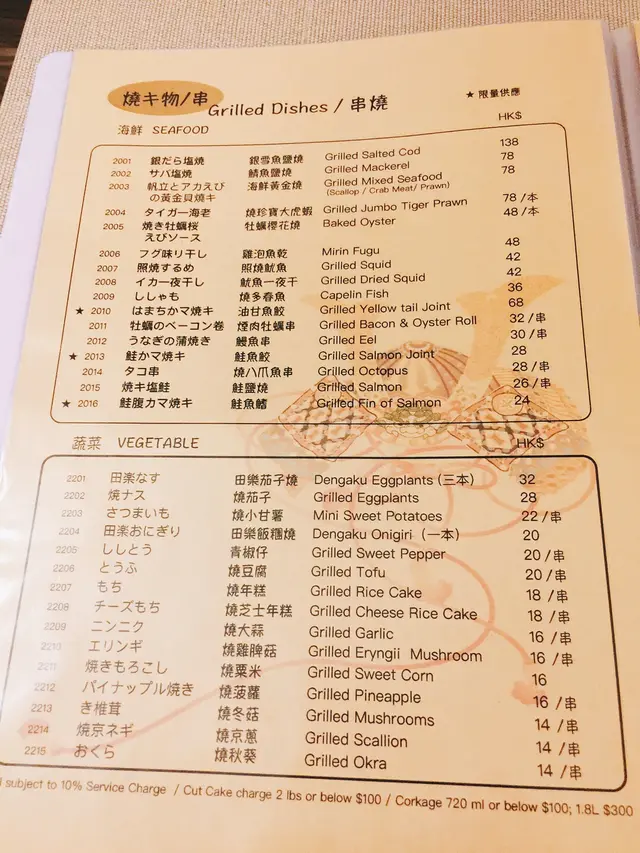 燒キ物/串 Grilled Dishes / 串燒
★ 限量供應
海鮮 SEAFOOD HK$
2001 銀だら塩焼 銀雪魚鹽燒 Grilled Salted Cod 138
2002 サバ塩焼 鯖魚鹽燒 Grilled Mackerel 78
2003 帆立とアカえび 海鮮黃金燒 Grilled Mixed Seafood 78
の黃金貝焼キ (Scallop / Crab Meat/ Prawn)
2004 タイガー海老 燒珍寶大虎蝦 Grilled Jumbo Tiger Prawn 78 /本
2005 焼き牡蠣桜 牡蠣櫻花燒 Baked Oyster 48 /本
えびソース
2006 フグ味リ干し 雞泡魚乾 Mirin Fugu 48
2007 照焼するめ 照燒魷魚 Grilled Squid 42
2008 イカ一夜干し 魷魚一夜干 Grilled Dried Squid 42
2009 ししゃも 燒多春魚 Capelin Fish 36
★ 2010 はまちかマ焼キ 油甘魚鮫 Grilled Yellow tail Joint 68
2011 牡蠣のベーコン卷 煙肉牡蠣串 Grilled Bacon & Oyster Roll 32 /串
2012 うなぎの蒲焼き 鰻魚串 Grilled Eel 30 /串
★ 2013 鮭かマ焼キ 鮭魚鮫 Grilled Salmon Joint 28
2014 タコ串 燒八爪魚串 Grilled Octopus 28 /串
2015 焼キ塩鮭 鮭鹽燒 Grilled Salmon 26 /串
★ 2016 鮭腹カマ焼キ 鮭魚鰭 Grilled Fin of Salmon 24
蔬菜 VEGETABLE HK$
2201 田楽なす 田樂茄子燒 Dengaku Eggplants (三本) 32
2202 焼ナス 燒茄子 Grilled Eggplants 28
2203 さつまいも 燒小甘薯 Mini Sweet Potatoes 22 /串
2204 田楽おにぎり 田樂飯糰燒 Dengaku Onigiri (一本) 20
2205 ししとう 青椒仔 Grilled Sweet Pepper 20 /串
2206 とうふ 燒豆腐 Grilled Tofu 20 /串
2207 もち 燒年糕 Grilled Rice Cake 18 /串
2208 チーズもち 燒芝士年糕 Grilled Cheese Rice Cake 18 /串
2209 ニンニク 燒大蒜 Grilled Garlic 16 /串
2210 エリンギ 燒雞脾菇 Grilled Eryngii Mushroom 16 /串
2211 焼きもろこし 燒粟米 Grilled Sweet Corn 16
2212 パイナップル焼き 燒菠蘿 Grilled Pineapple 16 /串
2213 き椎茸 燒冬菇 Grilled Mushrooms 14 /串
2214 焼京ネギ 燒京蔥 Grilled Scallion 14 /串
2215 おくら 燒秋葵 Grilled Okra 14 /串
subject to 10% Service Charge / Cut Cake charge 2 lbs or below $100 / Corkage 720 ml or below $100; 1.8L $300